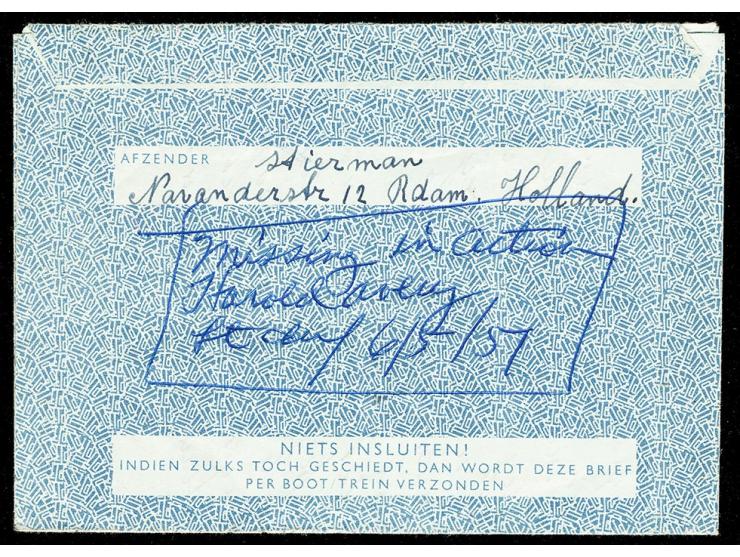 AFZENDER Stierman
Navanderstr 12 Rdam. Holland.
Missing in action
Harold avery
6/5/57
NIETS INSLUITEN!
INDIEN ZULKS TOCH GESCHIEDT, DAN WORDT DEZE BRIEF
PER BOOT/TREIN VERZONDEN